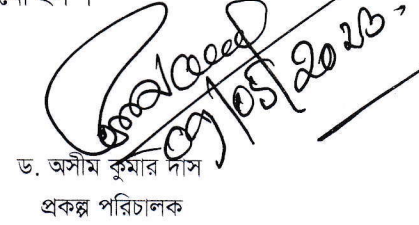 ০৭/০৫/২০২৩
ড. অসীম কুমার দাস
প্রকল্প পরিচালক